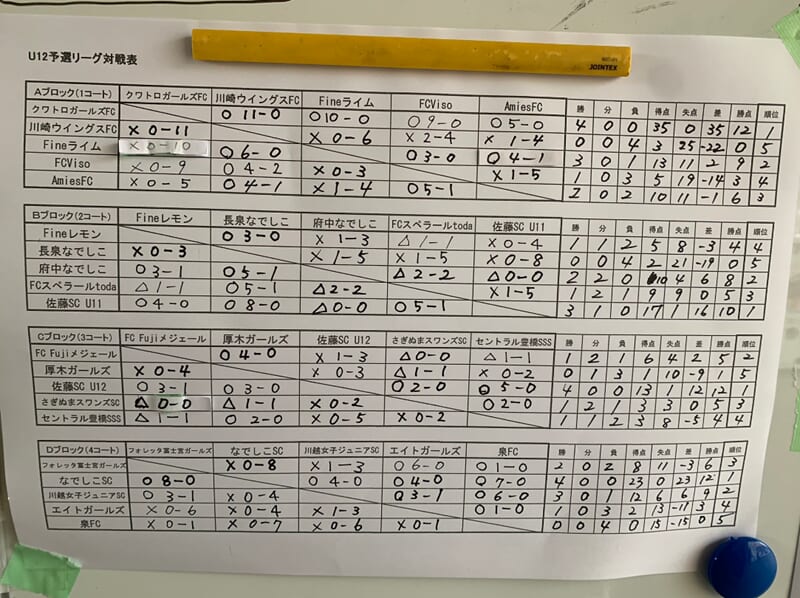 JOINTEX
U12予選リーグ対戦表
Aブロック(1コート) クワトロガールズFC 川崎ウイングスFC Fineライム FCViso AmiesFC 勝 分 負 得点 失点 差 勝点 順位
クワトロガールズFC O 11-0 O 10-0 O 9-0 O 5-0 4 0 0 35 0 35 12 1
川崎ウイングスFC X 0-11 X 0-6 X 2-4 X 1-4 0 0 4 3 25 -22 0 5
Fineライム X 0-10 O 6-0 O 3-0 O 4-1 3 0 1 13 11 2 9 2
FCViso X 0-9 O 4-2 X 0-3 X 1-5 1 0 3 5 19 -14 3 4
AmiesFC X 0-5 O 4-1 X 1-4 O 5-1 2 0 2 10 11 -1 6 3
Bブロック(2コート) Fineレモン 長泉なでしこ 府中なでしこ FCスペラールtoda 佐藤SC U11 勝 分 負 得点 失点 差 勝点 順位
Fineレモン O 3-0 X 1-3 △ 1-1 X 0-4 1 1 2 5 8 -3 4 4
長泉なでしこ X 0-3 X 1-5 X 1-5 X 0-8 0 0 4 2 21 -19 0 5
府中なでしこ O 3-1 O 5-1 △ 2-2 △ 0-0 2 2 0 10 4 6 8 2
FCスペラールtoda △ 1-1 O 5-1 △ 2-2 X 1-5 1 2 1 9 9 0 5 3
佐藤SC U11 O 4-0 O 8-0 △ 0-0 O 5-1 3 1 0 17 1 16 10 1
Cブロック(3コート) FC Fujiメジェール 厚木ガールズ 佐藤SC U12 さぎぬまスワンズSC セントラル豊橋SSS 勝 分 負 得点 失点 差 勝点 順位
FC Fujiメジェール O 4-0 X 1-3 △ 0-0 △ 1-1 1 2 1 6 4 2 5 2
厚木ガールズ X 0-4 X 0-3 △ 1-1 X 0-2 0 1 3 1 10 -9 1 5
佐藤SC U12 O 3-1 O 3-0 O 2-0 O 5-0 4 0 0 13 1 12 12 1
さぎぬまスワンズSC △ 0-0 △ 1-1 X 0-2 O 2-0 1 2 1 3 3 0 5 3
セントラル豊橋SSS △ 1-1 O 2-0 X 0-5 X 0-2 1 1 2 3 8 -5 4 4
Dブロック(4コート) フォレッタ富士宮ガールズ なでしこSC 川越女子ジュニアSC エイトガールズ 泉FC 勝 分 負 得点 失点 差 勝点 順位
フォレッタ富士宮ガールズ X 0-8 X 1-3 O 6-0 O 1-0 2 0 2 8 11 -3 6 3
なでしこSC O 8-0 O 4-0 O 4-0 O 7-0 4 0 0 23 0 23 12 1
川越女子ジュニアSC O 3-1 X 0-4 O 3-1 O 6-0 3 0 1 12 6 6 9 2
エイトガールズ X 0-6 X 0-4 X 1-3 O 1-0 1 0 3 2 13 -11 3 4
泉FC X 0-1 X 0-7 X 0-6 X 0-1 0 0 4 0 15 -15 0 5